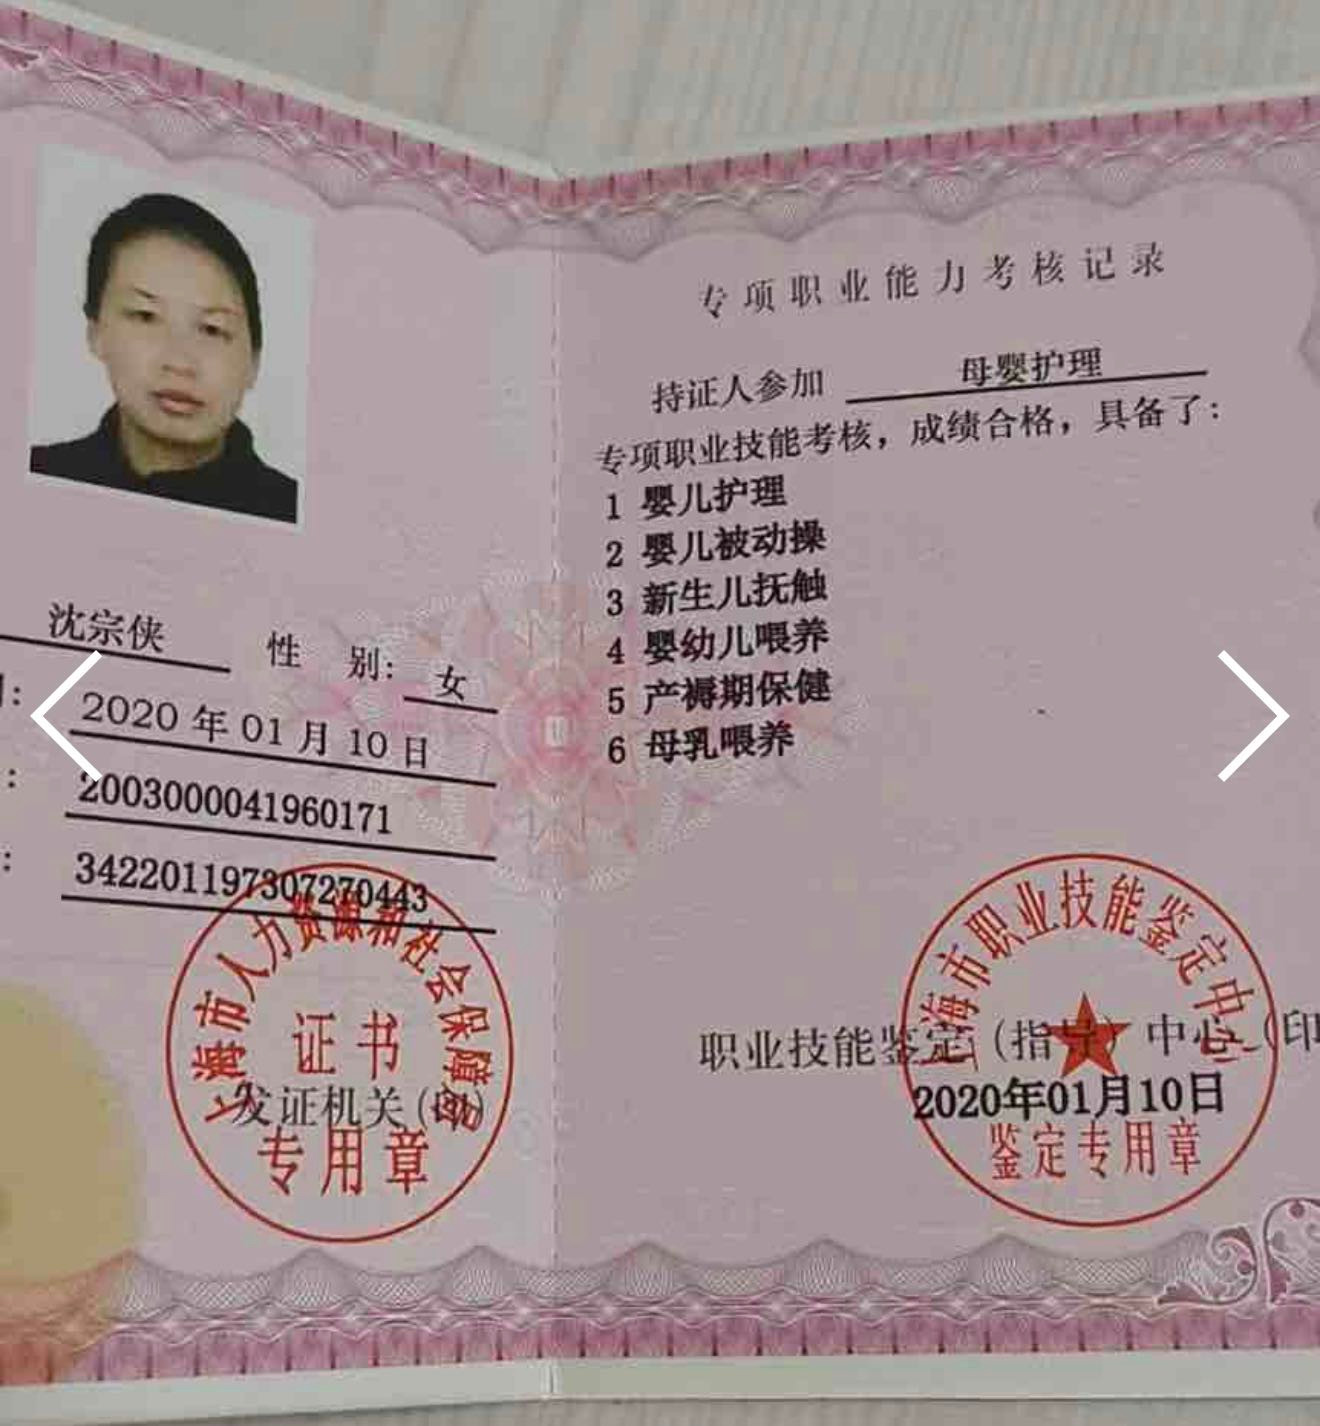 沈宗侠 性 别: 女
2020 年 01 月 10 日
2003000041960171
342201197307270443
上海市人力资源和社会保障局
证书
发证机关(印)
专用章
专项职业能力考核记录
持证人参加 母婴护理
专项职业技能考核，成绩合格，具备了：
1 婴儿护理
2 婴儿被动操
3 新生儿抚触
4 婴幼儿喂养
5 产褥期保健
6 母乳喂养
上海市职业技能鉴定中心
职业技能鉴定(指导)中心(印
2020年01月10日
鉴定专用章